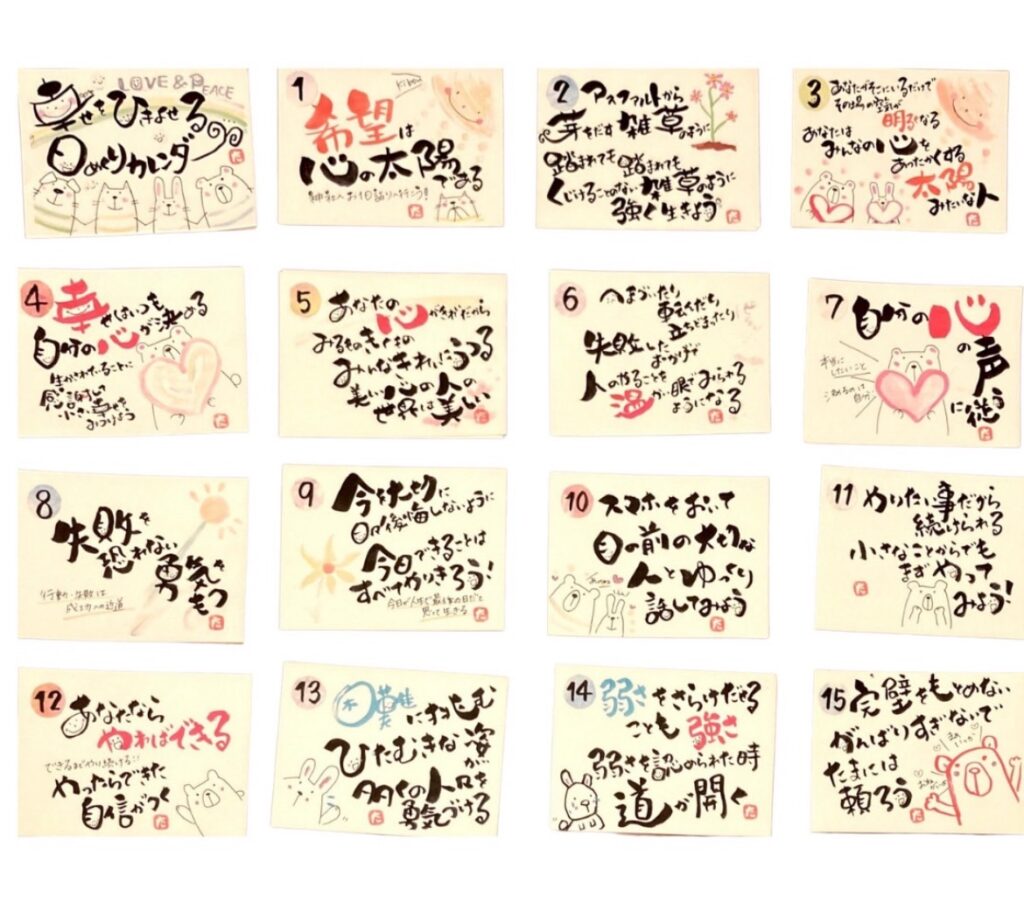 LOVE & PEACE
幸せをひきよせる
日めくりカレンダー
1
希望は
心の太陽
である
2
アスファルトから
芽をだす雑草のように
踏まれても踏まれても
くじけることのない雑草のように
強く生きよう
3
あなたがそこにいるだけで
その場の空気が
明るくなる
あなたは
みんなの心を
あったかくする
太陽
みたいな人
4
幸せはいつも
自分の心が決める
生かされていることに
感謝して
小さな幸せを
みつけよう
5
あなたの
心がきれいだから
みるものきくもの
みんなきれいにうつる
美しい心の人の
世界は美しい
6
つまづいたり
転んだり
立ちどまったり
失敗した
おかげで
人のやることを
温かい眼でみられる
ようになる
7
自分の心
の声
に従う
本当に
したいこと
決めるのは
自分
8
失敗を
恐れない
勇気を
もつ
行動・失敗は
成功への近道
9
今を大切に
日々後悔しないように
今日できることは
すべてやりきろう!
今日が人生で最後の日だと
思って生きる
10
スマホをおいて
目の前の大切な
人とゆっくり
話してみよう
11
やりたい事だから
続けられる
小さなことからでも
まずやって
みよう!
12
あなたなら
やればできる
できるまでやり続ける!!
やったらできた
自信がつく
13
困難に挑む
ひたむきな姿が
多くの人々を
勇気づける
14
弱さをさらけだせる
ことも強さ
弱さを認められた時
道が開く
15
完璧をもとめない
がんばりすぎないで
たまには
頼ろう